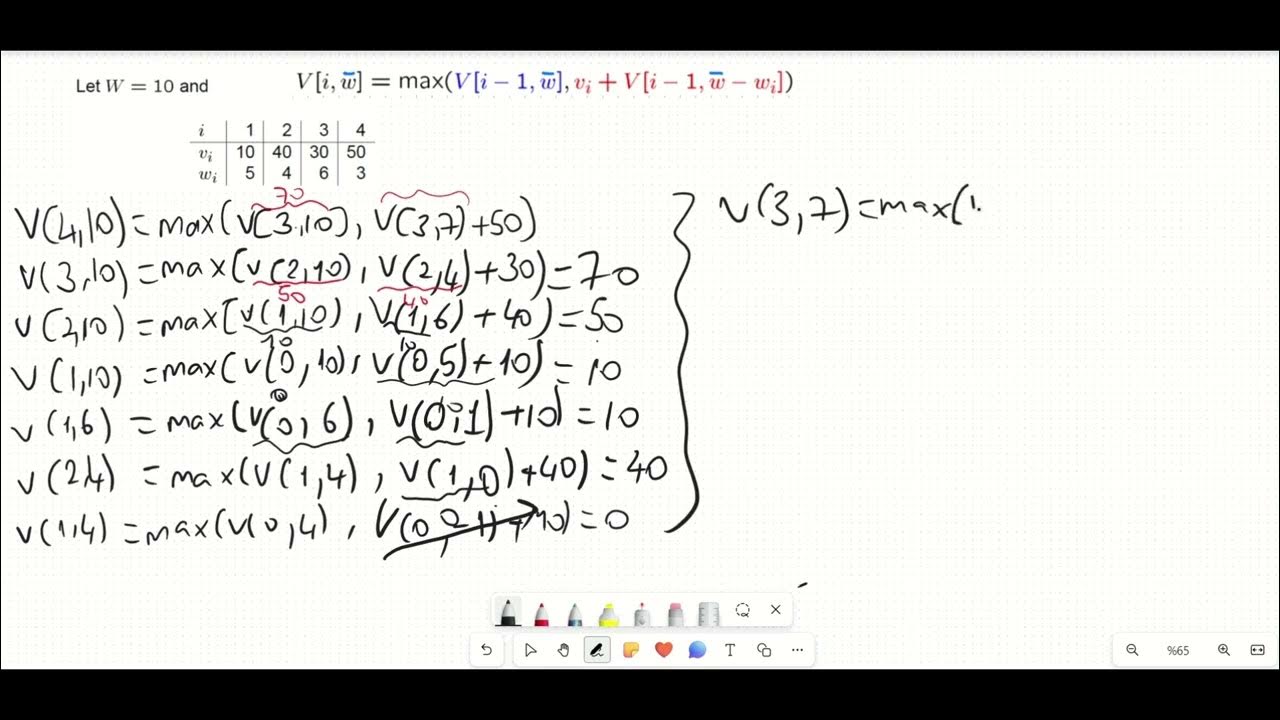 Let W = 10 and
V[i, w̅] = max(V[i − 1, w̅], vᵢ + V[i − 1, w̅ − wᵢ])
i 1 2 3 4
vᵢ 10 40 30 50
wᵢ 5 4 6 3
70
V(4,10)=max(V(3,10), V(3,7)+50)
V(3,10)=max(V(2,10), V(2,4)+30)=70
50 40
V(2,10)=max(V(1,10), V(1,6)+40)=50
10 10
V(1,10)=max(V(0,10), V(0,5)+10)=10
0 0
V(1,6)=max(V(0,6), V(0,1)+10)=10
V(2,4)=max(V(1,4), V(1,0)+40)=40
V(1,4)=max(V(0,4), V(0,-1)+10)=0
V(3,7)=max(
T
%65